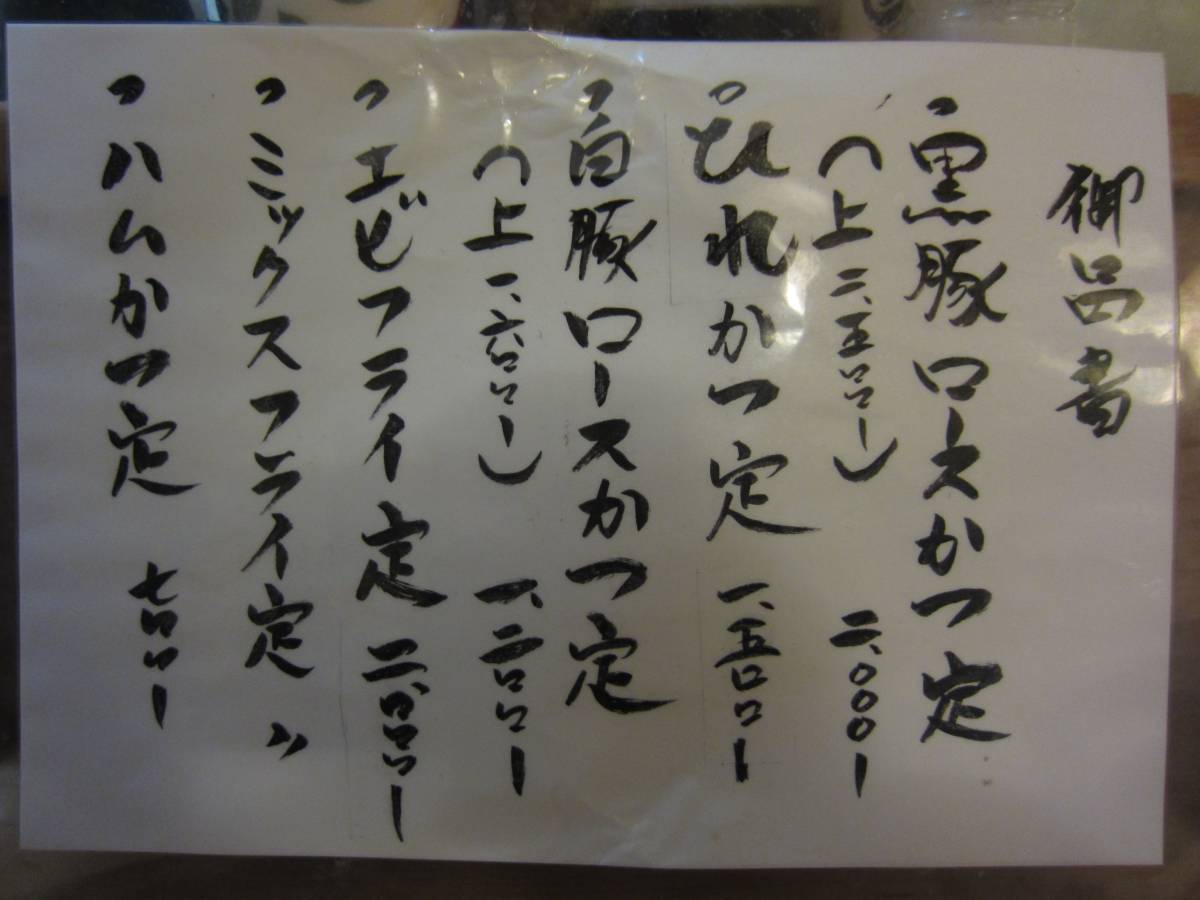 御品書
・黒豚ロースかつ定
(上 二、五〇〇ー) 二、〇〇〇ー
・ひれかつ定 一、五〇〇ー
・白豚ロースかつ定
(上 一、六〇〇ー) 一、二〇〇ー
・エビフライ定 二、〇〇〇ー
・ミックスフライ定 〃
・ハムかつ定 七〇〇ー